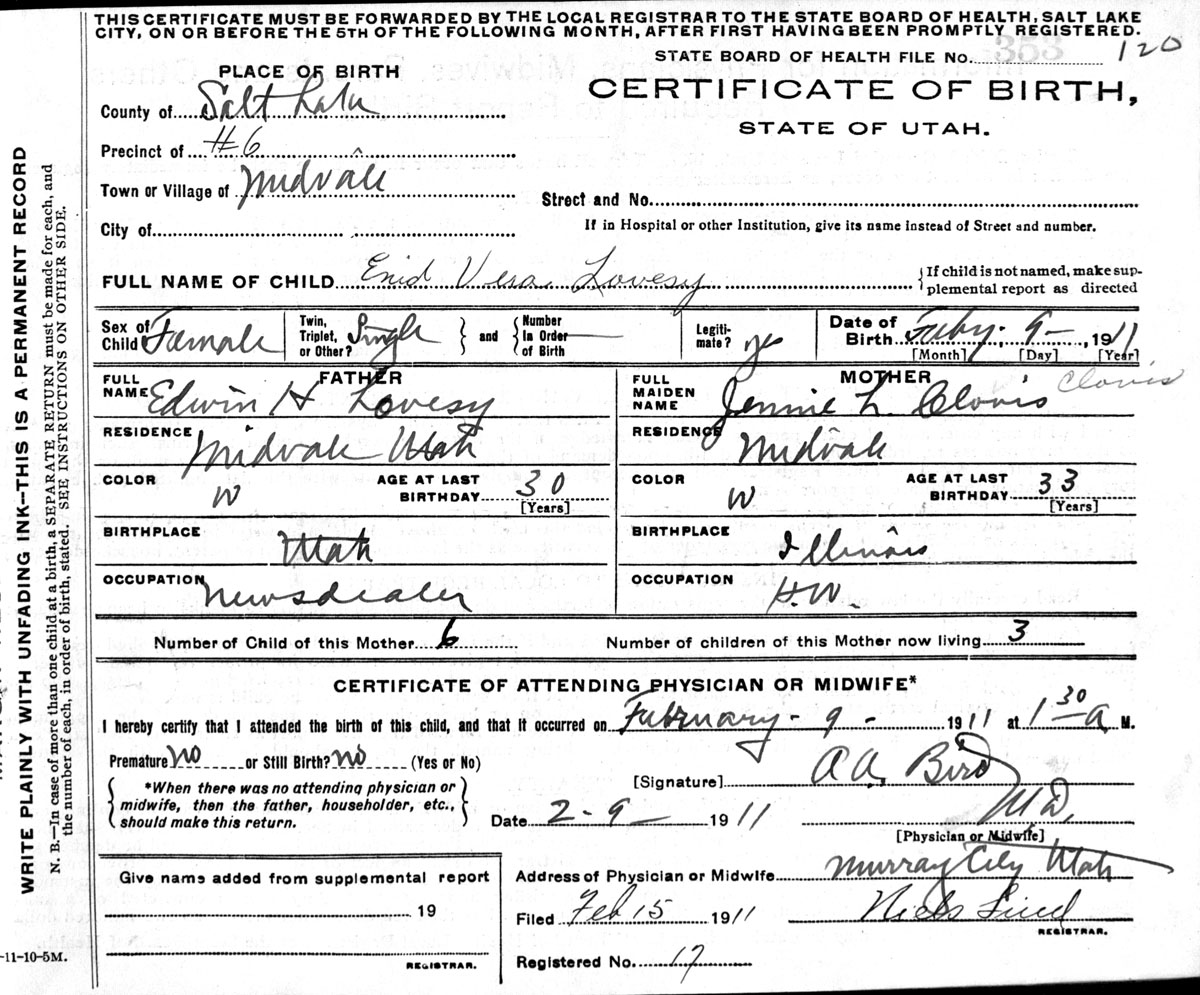 THIS CERTIFICATE MUST BE FORWARDED BY THE LOCAL REGISTRAR TO THE STATE BOARD OF HEALTH, SALT LAKE
CITY, ON OR BEFORE THE 5TH OF THE FOLLOWING MONTH, AFTER FIRST HAVING BEEN PROMPTLY REGISTERED.
STATE BOARD OF HEALTH FILE No. 353 120
PLACE OF BIRTH
CERTIFICATE OF BIRTH,
STATE OF UTAH.
County of Salt Lake
Precinct of #6
Town or Village of Midvale
Street and No.
City of
If in Hospital or other Institution, give its name instead of Street and number.
FULL NAME OF CHILD Enid Vera Lovesy
{If child is not named, make sup-
plemental report as directed
Sex of Child Female
Twin, Triplet, or Other? Single } and { Number In Order of Birth
Legiti-mate? yes
Date of Birth Feby. 9 - , 1911
[Month] [Day] [Year]
FATHER
FULL NAME Edwin H Lovesy
RESIDENCE Midvale Utah
COLOR W AGE AT LAST BIRTHDAY 30 [Years]
BIRTHPLACE Utah
OCCUPATION Newsdealer
MOTHER
FULL MAIDEN NAME Jennie L. Clovis Clovis
RESIDENCE Midvale
COLOR W AGE AT LAST BIRTHDAY 33 [Years]
BIRTHPLACE Illinois
OCCUPATION H.W.
Number of Child of this Mother 6 Number of children of this Mother now living 3
CERTIFICATE OF ATTENDING PHYSICIAN OR MIDWIFE*
I hereby certify that I attended the birth of this child, and that it occurred on February - 9 - 1911 at 1 30 A M.
Premature No or Still Birth? No (Yes or No)
[Signature] A A. Bird
M D.
[Physician or Midwife]
*When there was no attending physician or
midwife, then the father, householder, etc.,
should make this return.
Date 2 - 9 - 1911
Give name added from supplemental report
19
REGISTRAR.
Address of Physician or Midwife Murray City Utah
Filed Feb 15 1911 Niels Lind
REGISTRAR.
Registered No. 17
WRITE PLAINLY WITH UNFADING INK—THIS IS A PERMANENT RECORD
N. B.—In case of more than one child at a birth, a SEPARATE RETURN must be made for each, and
the number of each, in order of birth, stated. SEE INSTRUCTIONS ON OTHER SIDE.
-11-10-5M.